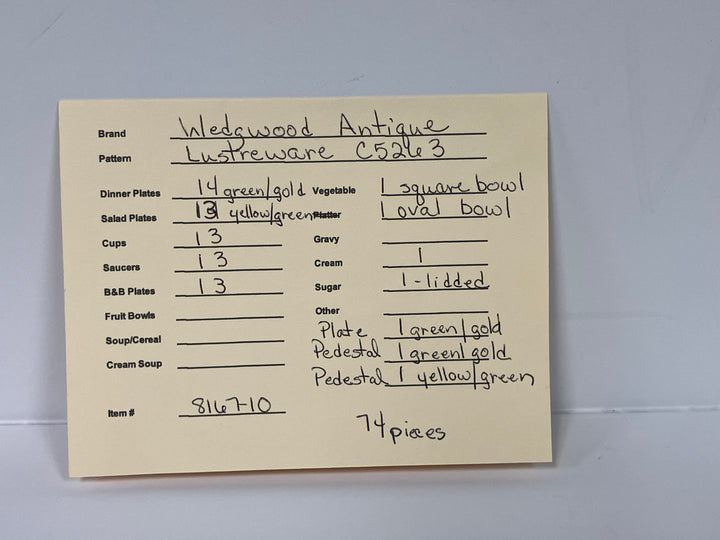 Brand Wedgwood Antique
Pattern Lustreware C5263
Dinner Plates 14 green/gold
Salad Plates 13 yellow/green
Cups 13
Saucers 13
B&B Plates 13
Fruit Bowls
Soup/Cereal
Cream Soup
Item # 8167-10
Vegetable 1 square bowl
Platter 1 oval bowl
Gravy
Cream 1
Sugar 1-lidded
Other
Plate 1 green/gold
Pedestal 1 green/gold
Pedestal 1 yellow/green
74 pieces